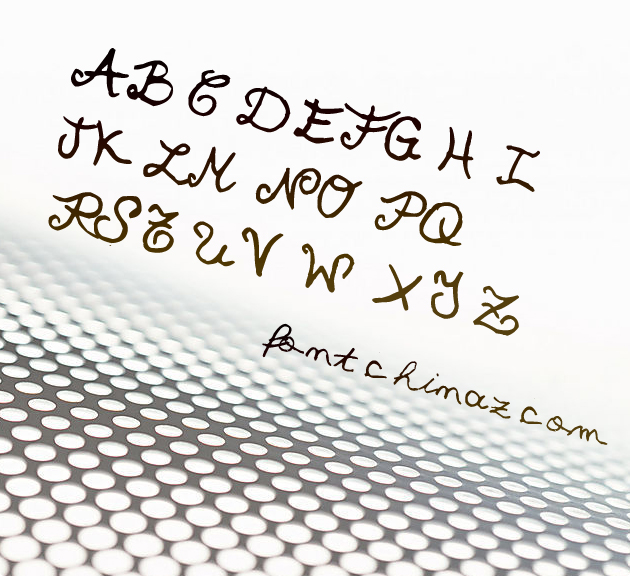 A B C D E F G H I
J K L M N O P Q
R S T U V W X Y Z
fontchinaz com